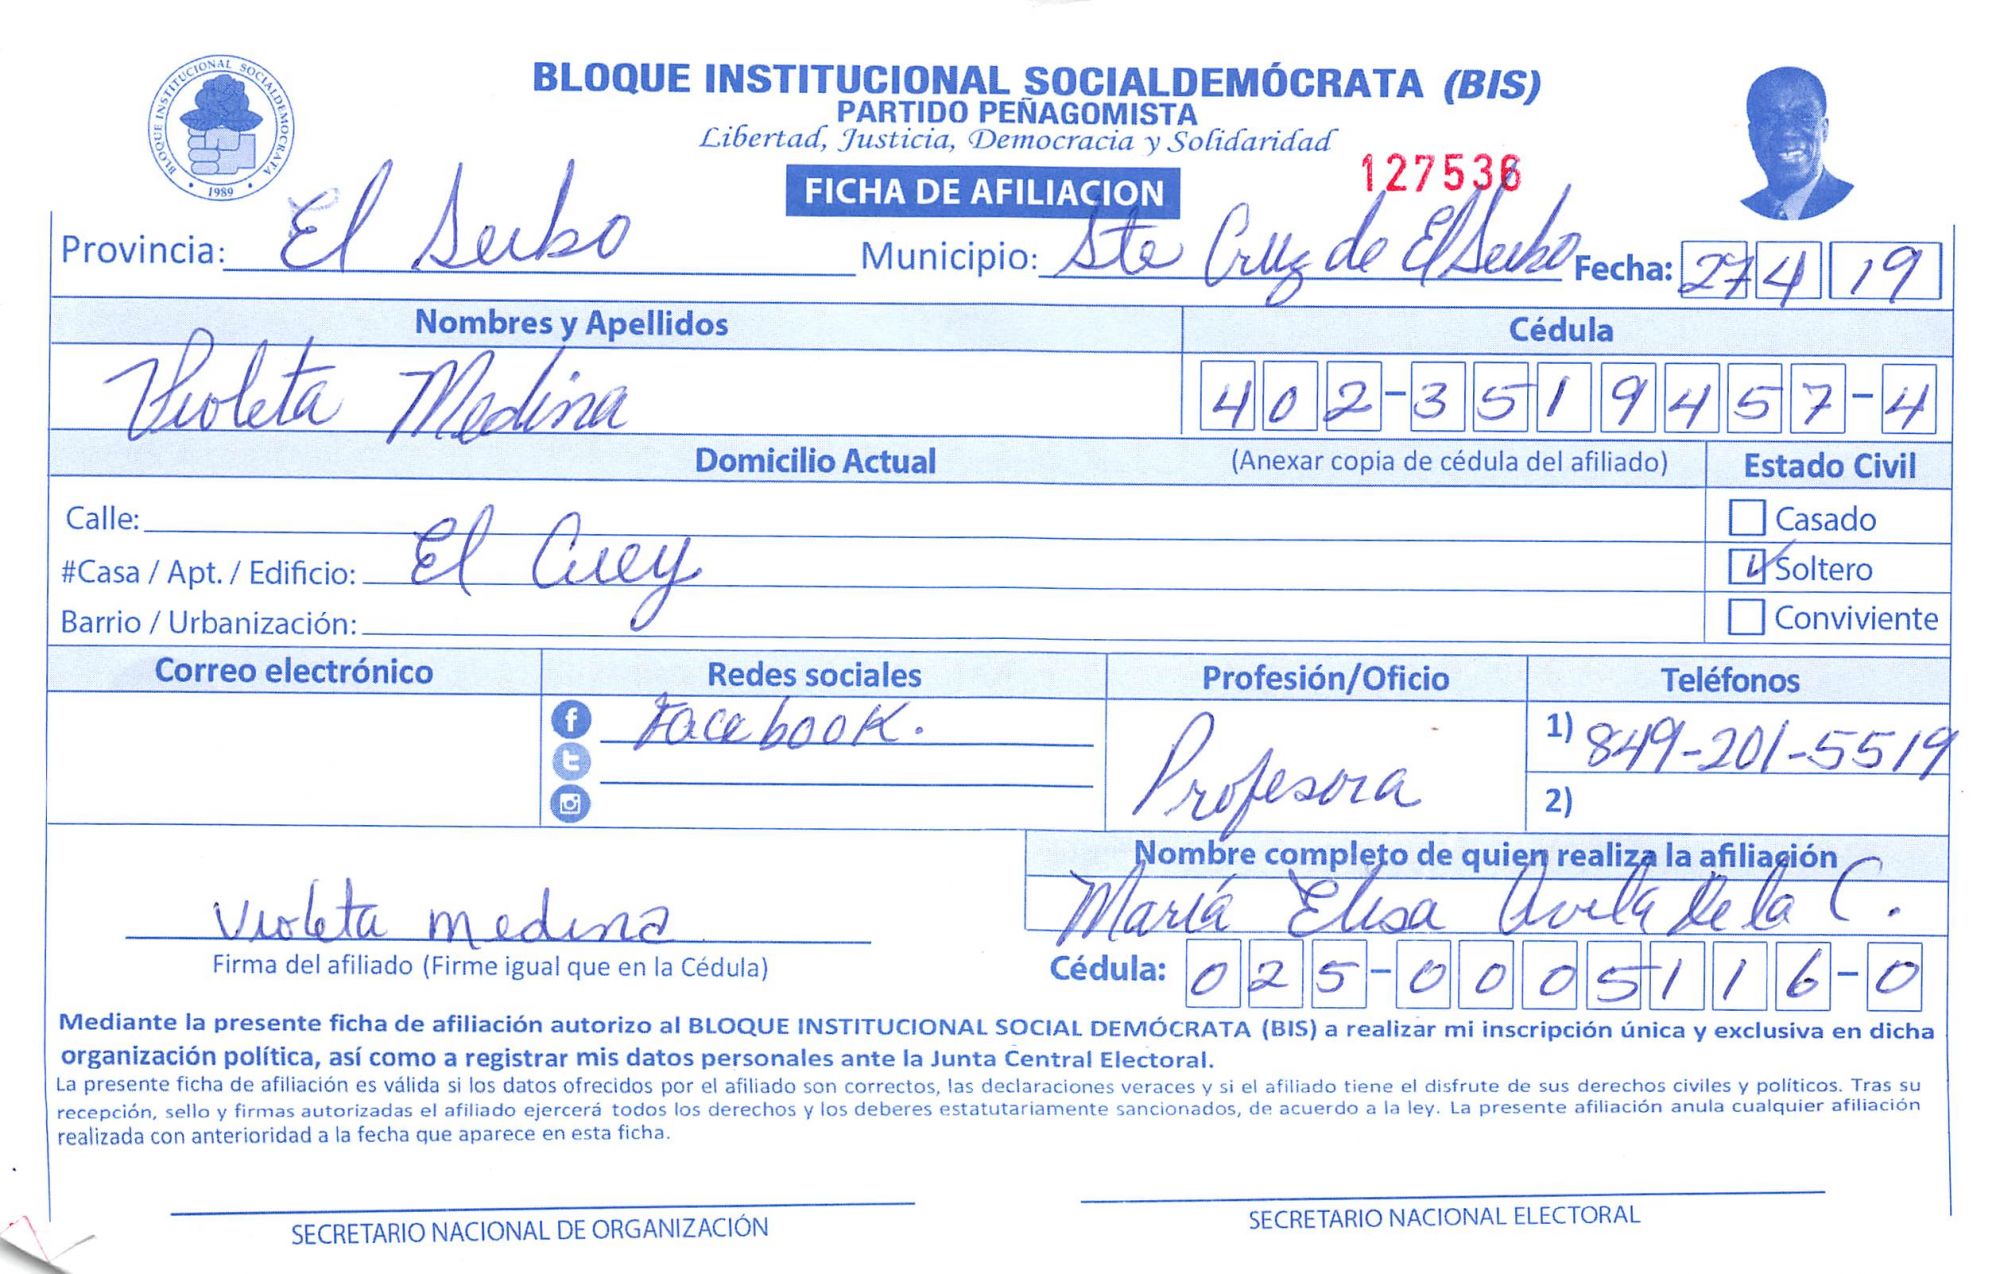 BLOQUE INSTITUCIONAL SOCIALDEMÓCRATA (BIS)
PARTIDO PEÑAGOMISTA
Libertad, Justicia, Democracia y Solidaridad
BLOQUE INSTITUCIONAL SOCIALDEMOCRATA
• 1989 •
FICHA DE AFILIACION
127536
Provincia: El Seibo Municipio: Sta Cruz de El Seibo Fecha: 27 4 19
Nombres y Apellidos Cédula
Violeta Medina 402-3519457-4
Domicilio Actual (Anexar copia de cédula del afiliado) Estado Civil
Calle: Casado
#Casa / Apt. / Edificio: El Cuey Soltero
Barrio / Urbanización: Conviviente
Correo electrónico Redes sociales Profesión/Oficio Teléfonos
Facebook. Profesora 1) 849-201-5519
2)
Nombre completo de quien realiza la afiliación
María Elisa Avila De la C.
Violeta medina
Firma del afiliado (Firme igual que en la Cédula) Cédula: 025-0005116-0
Mediante la presente ficha de afiliación autorizo al BLOQUE INSTITUCIONAL SOCIAL DEMÓCRATA (BIS) a realizar mi inscripción única y exclusiva en dicha
organización política, así como a registrar mis datos personales ante la Junta Central Electoral.
La presente ficha de afiliación es válida si los datos ofrecidos por el afiliado son correctos, las declaraciones veraces y si el afiliado tiene el disfrute de sus derechos civiles y políticos. Tras su
recepción, sello y firmas autorizadas el afiliado ejercerá todos los derechos y los deberes estatutariamente sancionados, de acuerdo a la ley. La presente afiliación anula cualquier afiliación
realizada con anterioridad a la fecha que aparece en esta ficha.
SECRETARIO NACIONAL DE ORGANIZACIÓN SECRETARIO NACIONAL ELECTORAL